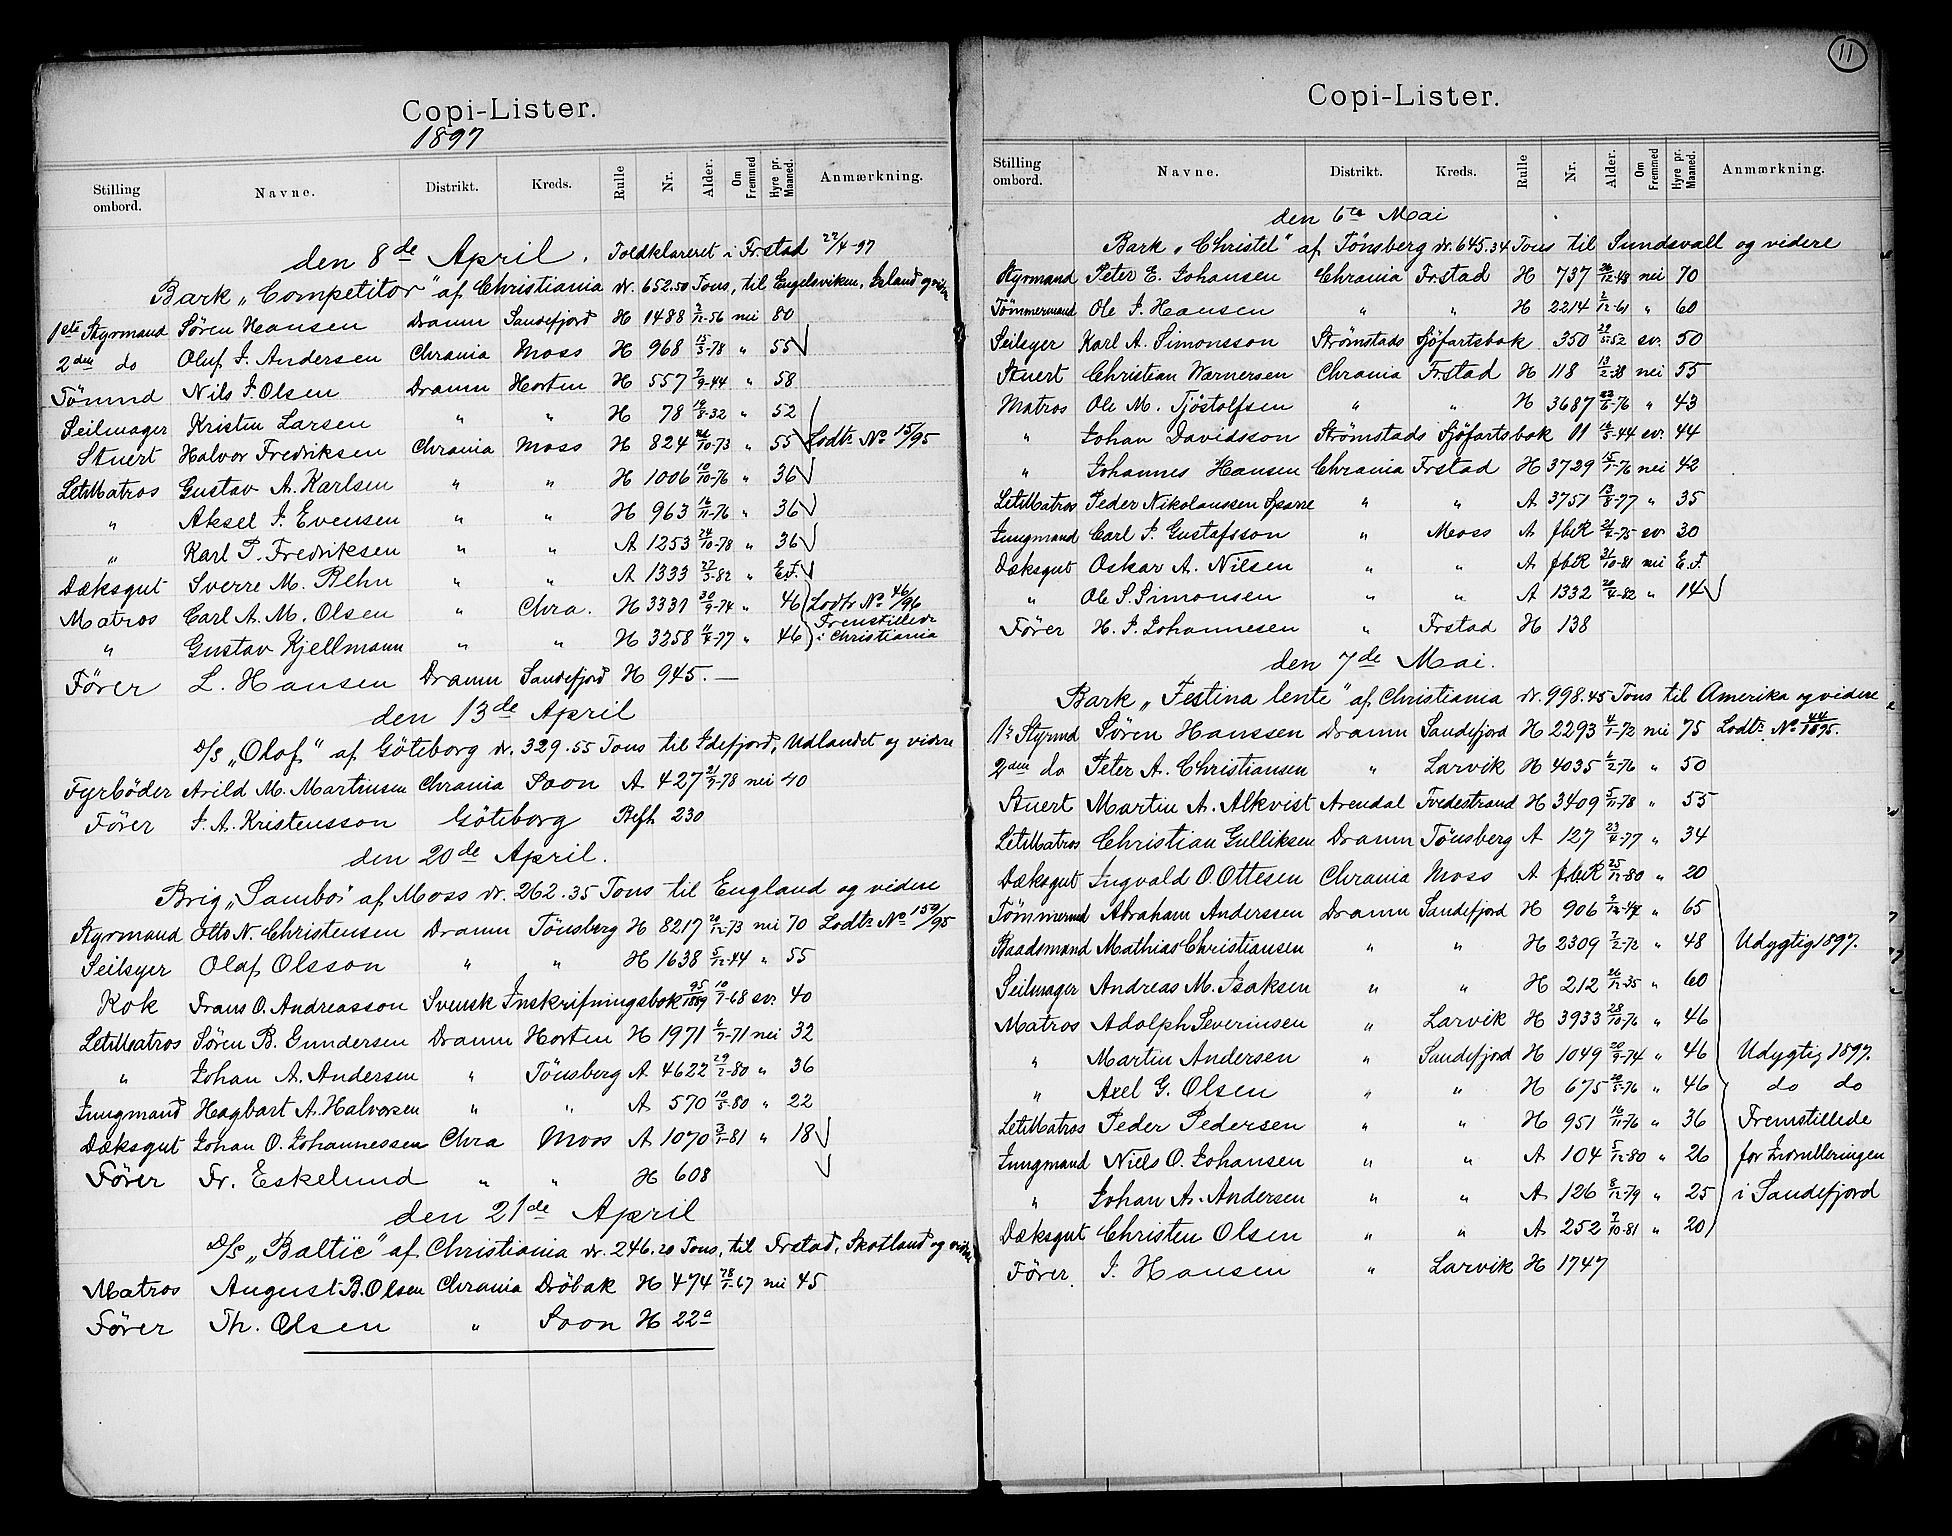 Copi-Lister.
1897
Stilling ombord. Navne. Distrikt. Kreds. Rulle Nr. Alder. Om Fremmed Hyre pr. Maaned. Anmærkning.
den 8de April. Toldklareret i Fr.stad 22/4-97
Bark „Competitor“ af Christiania dr. 652.50 Tons, til Engelsviken, Island og videre
1ste Styrmand Søren Hansen Dramn Sandefjord H 1488 2/12-56 nei 80
2den do Oluf J. Andersen Chrania Moss H 968 15/3-78 " 55
Tömmd Nils J. Olsen Dramn Horten H 557 2/9-44 " 58
Seilmager Kristen Larsen " " H 78 19/8-32 " 52
Stuert Halvor Fredriksen Chrania Moss H 824 26/10-73 " 55 Lodts No 15/95
LetMatros Gustav A. Karlsen " " H 1006 10/10-76 " 36
" Aksel J. Evensen " " H 963 16/11-76 " 36
" Karl P. Fredriksen " " A 1253 24/10-78 " 36
Dæksgut Sverre M. Rehn " " A 1333 27/3-82 " E.F.
Matros Carl A. M. Olsen " Chra. H 3331 30/9-74 " 46 Lodts No 46/96
Fremstilledes
" Gustav Kjellmann " " H 3258 11/4-77 " 46 i Christiania
Förer L. Hansen Dramn Sandefjord H 945. —
den 13de April
D/S „Olof“ af Göteborg dr. 329.55 Tons til Idefjord, Udlandet og videre
Fyrböder Arild M. Martinsen Chrania Soon A 427 21/9-78 nei 40
Förer J. A. Kristensson Göteborg Befh 230
den 20de April.
Brig „Sambo“ af Moss dr. 262.35 Tons til England og videre
Styrmand Otto N. Christensen Dramn Tönsberg H 8217 20/12-73 nei 70 Lodts No 159/95
Seilsyer Olaf Olsson " " H 1638 5/12-44 " 55
Kok Frans O. Andreasson Svensk Inskrifningsbok 95/1889 10/7-68 sv. 40
LetMatros Søren B. Gundersen Dramn Horten H 1971 6/7-71 nei 32
" Johan A. Andersen " Tönsberg A 4622 29/2-80 " 36
Jungmand Hagbart A. Halvorsen " " A 570 10/5-80 " 22
Dæksgut Johan O. Johannessen Chra Moss A 1070 3/1-81 " 18
Förer Fr. Eskelund " " H 608
den 21de April
D/S „Baltic“ af Christiania dr. 246.20 Tons, til Frstad, Skotland og videre
Matros August B. Olsen Chrania Dröbak H 474 78/1-67 nei 45
Förer Th. Olsen " Soon H 22a
11
Copi-Lister.
Stilling ombord. Navne. Distrikt. Kreds. Rulle Nr. Alder. Om Fremmed Hyre pr. Maaned. Anmærkning.
den 6te Mai
Bark „Christel“ af Tönsberg dr. 645.34 Tons til Sundsvall og videre
Styrmand Peter E. Johansen Chrania Frstad H 737 26/12-48 nei 70
Tömmermand Ole J. Hansen " " H 2214 2/12-61 " 60
Seilsyer Karl A. Simonsson Strömstads Sjöfartsbok 350 29/5-52 sv. 50
Stuert Christian Wernersen Chrania Frstad H 118 13/2-38 nei 55
Matros Ole M. Tjöstolfsen " " H 3687 23/6-76 " 43
" Johan Davidsson Strömstads Sjöfartsbok 11 16/5-44 sv. 44
" Johannes Hansen Chrania Frstad H 3729 15/1-76 nei 42
LetMatros Peder Nikolaussen Sparre " " A 3751 13/8-77 " 35
Jungmand Carl J. Gustafsson " Moss A fbR 21/2-75 sv. 30
Dæksgut Oskar A. Nilsen " " A fbR 31/10-81 nei E.F.
" Ole S. Simonsen " " A 1332 20/4-82 " 14
Förer H. J. Johannesen " Frstad H 138
den 7de Mai.
Bark „Festina lente“ af Christiania dr. 998.45 Tons til Amerika og videre
1ste Styrmd Søren Hanssen Dramn Sandefjord H 2293 4/1-72 nei 75 Lodts No 44/1895.
2den do Peter A. Christiansen " Larvik H 4035 6/2-76 " 50
Stuert Martin A. Alkvist Arendal Tvedestrand H 3409 5/11-78 " 55
LetMatros Christian Gulliksen Dramn Tönsberg A 127 23/4-77 " 34
Dæksgut Ingvald O. Ottesen Chrania Moss A fbR 25/11-80 " 20
Tömmermd Abraham Anderssen Dramn Sandefjord H 906 9/12-47 " 65
Baadsmand Mathias Christiansen " " H 2309 7/2-72 " 48 Udygtig 1897.
Seilmager Andreas M. Isaksen " " H 212 26/12-35 " 60
Matros Adolph Severinsen " Larvik H 3933 28/10-76 " 46
" Martin Andersen " Sandefjord H 1049 20/9-74 " 46 Udygtig 1897.
" Axel G. Olsen " " H 675 20/5-76 " 46 do do
LetMatros Peder Pedersen " " H 951 16/11-76 " 36 Fremstillede
Jungmand Niels O. Johansen " " A 104 5/12-80 " 26 for Indrulleringen
" Johan A. Andersen " " A 126 8/12-79 " 25 i Sandefjord
Dæksgut Christen Olsen " " A 252 7/10-81 " 20
Förer. J. Hansen " Larvik H 1747